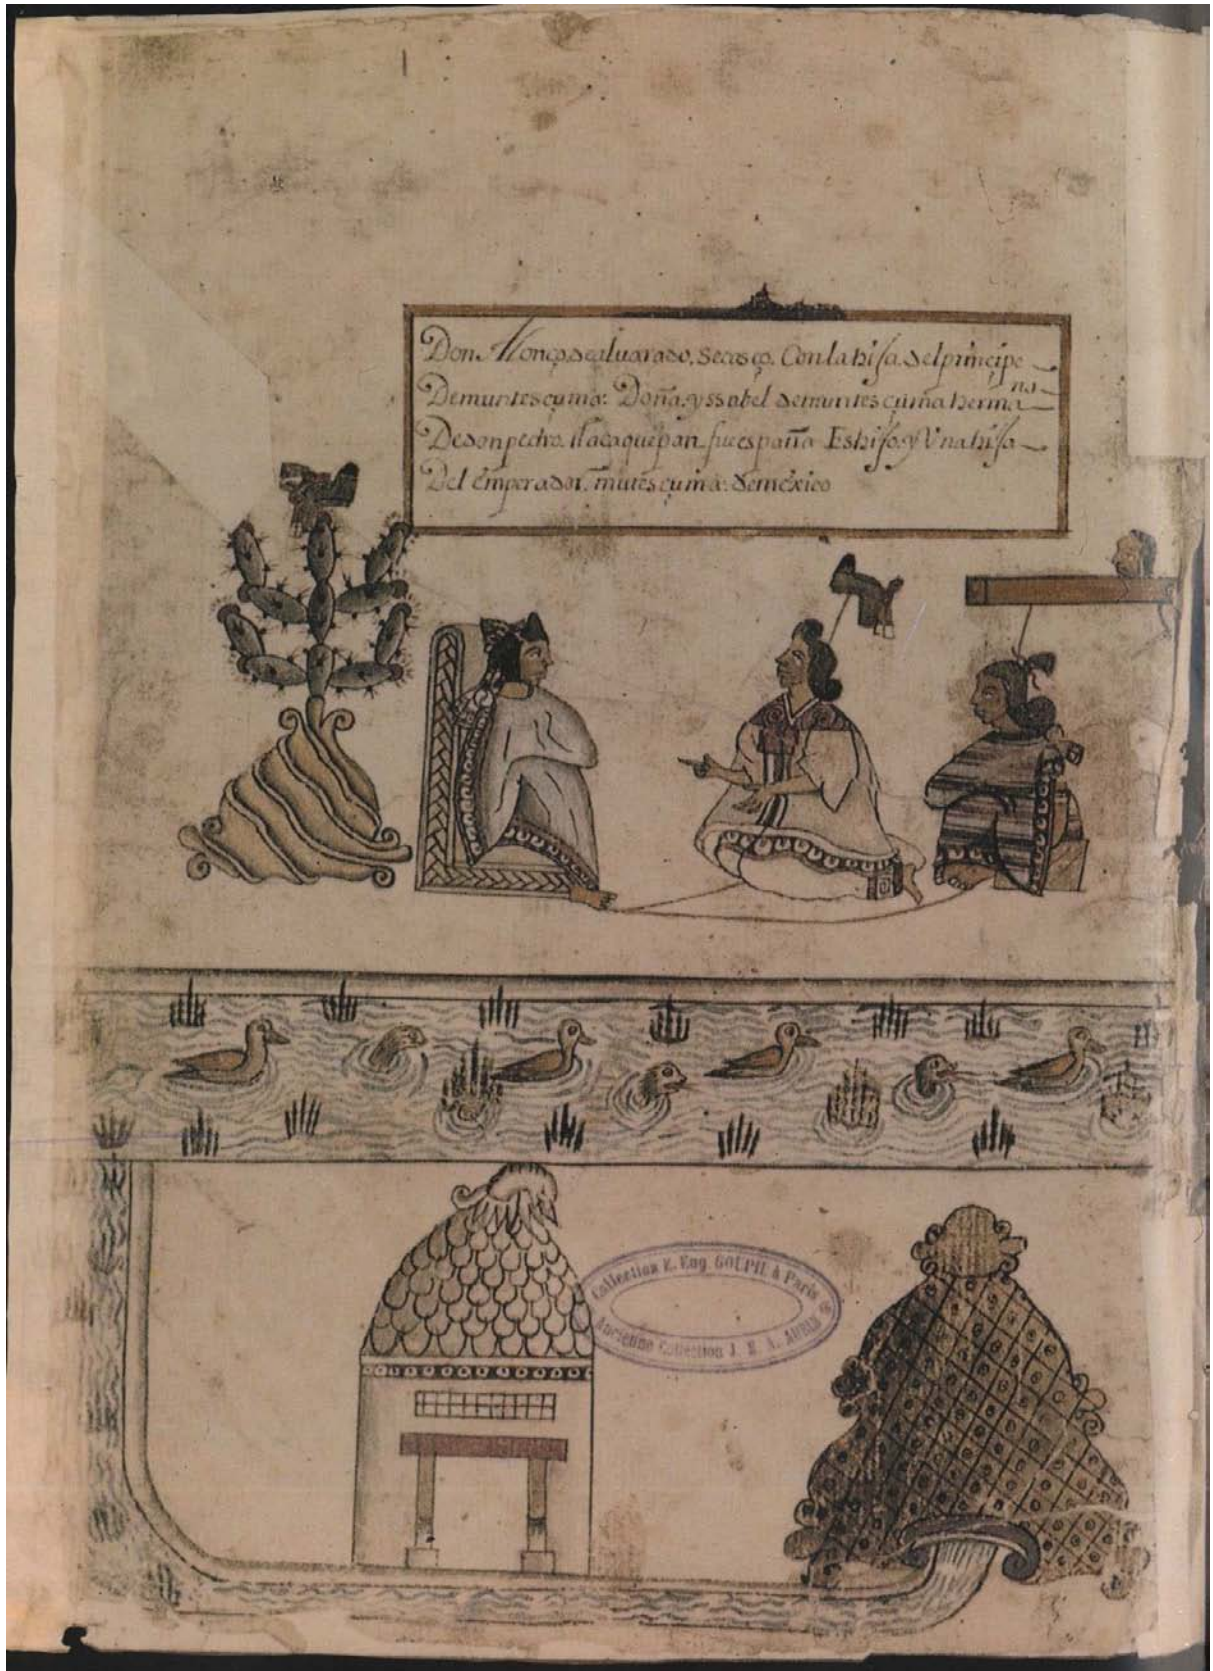 Don Alonço. de aluarado, Secasço. Con la hija. del principe
Demuntesçuma: Doña. yssabel demuntesçuma herma na
De don pedro. tlacaquepan fue españa Es hijo. y Vna hija
Del Emperador, mutesçuma: de mexico
Collection E. Eug. GOUPIL à Paris
Ancienne Collection J. M. A. AUBIN